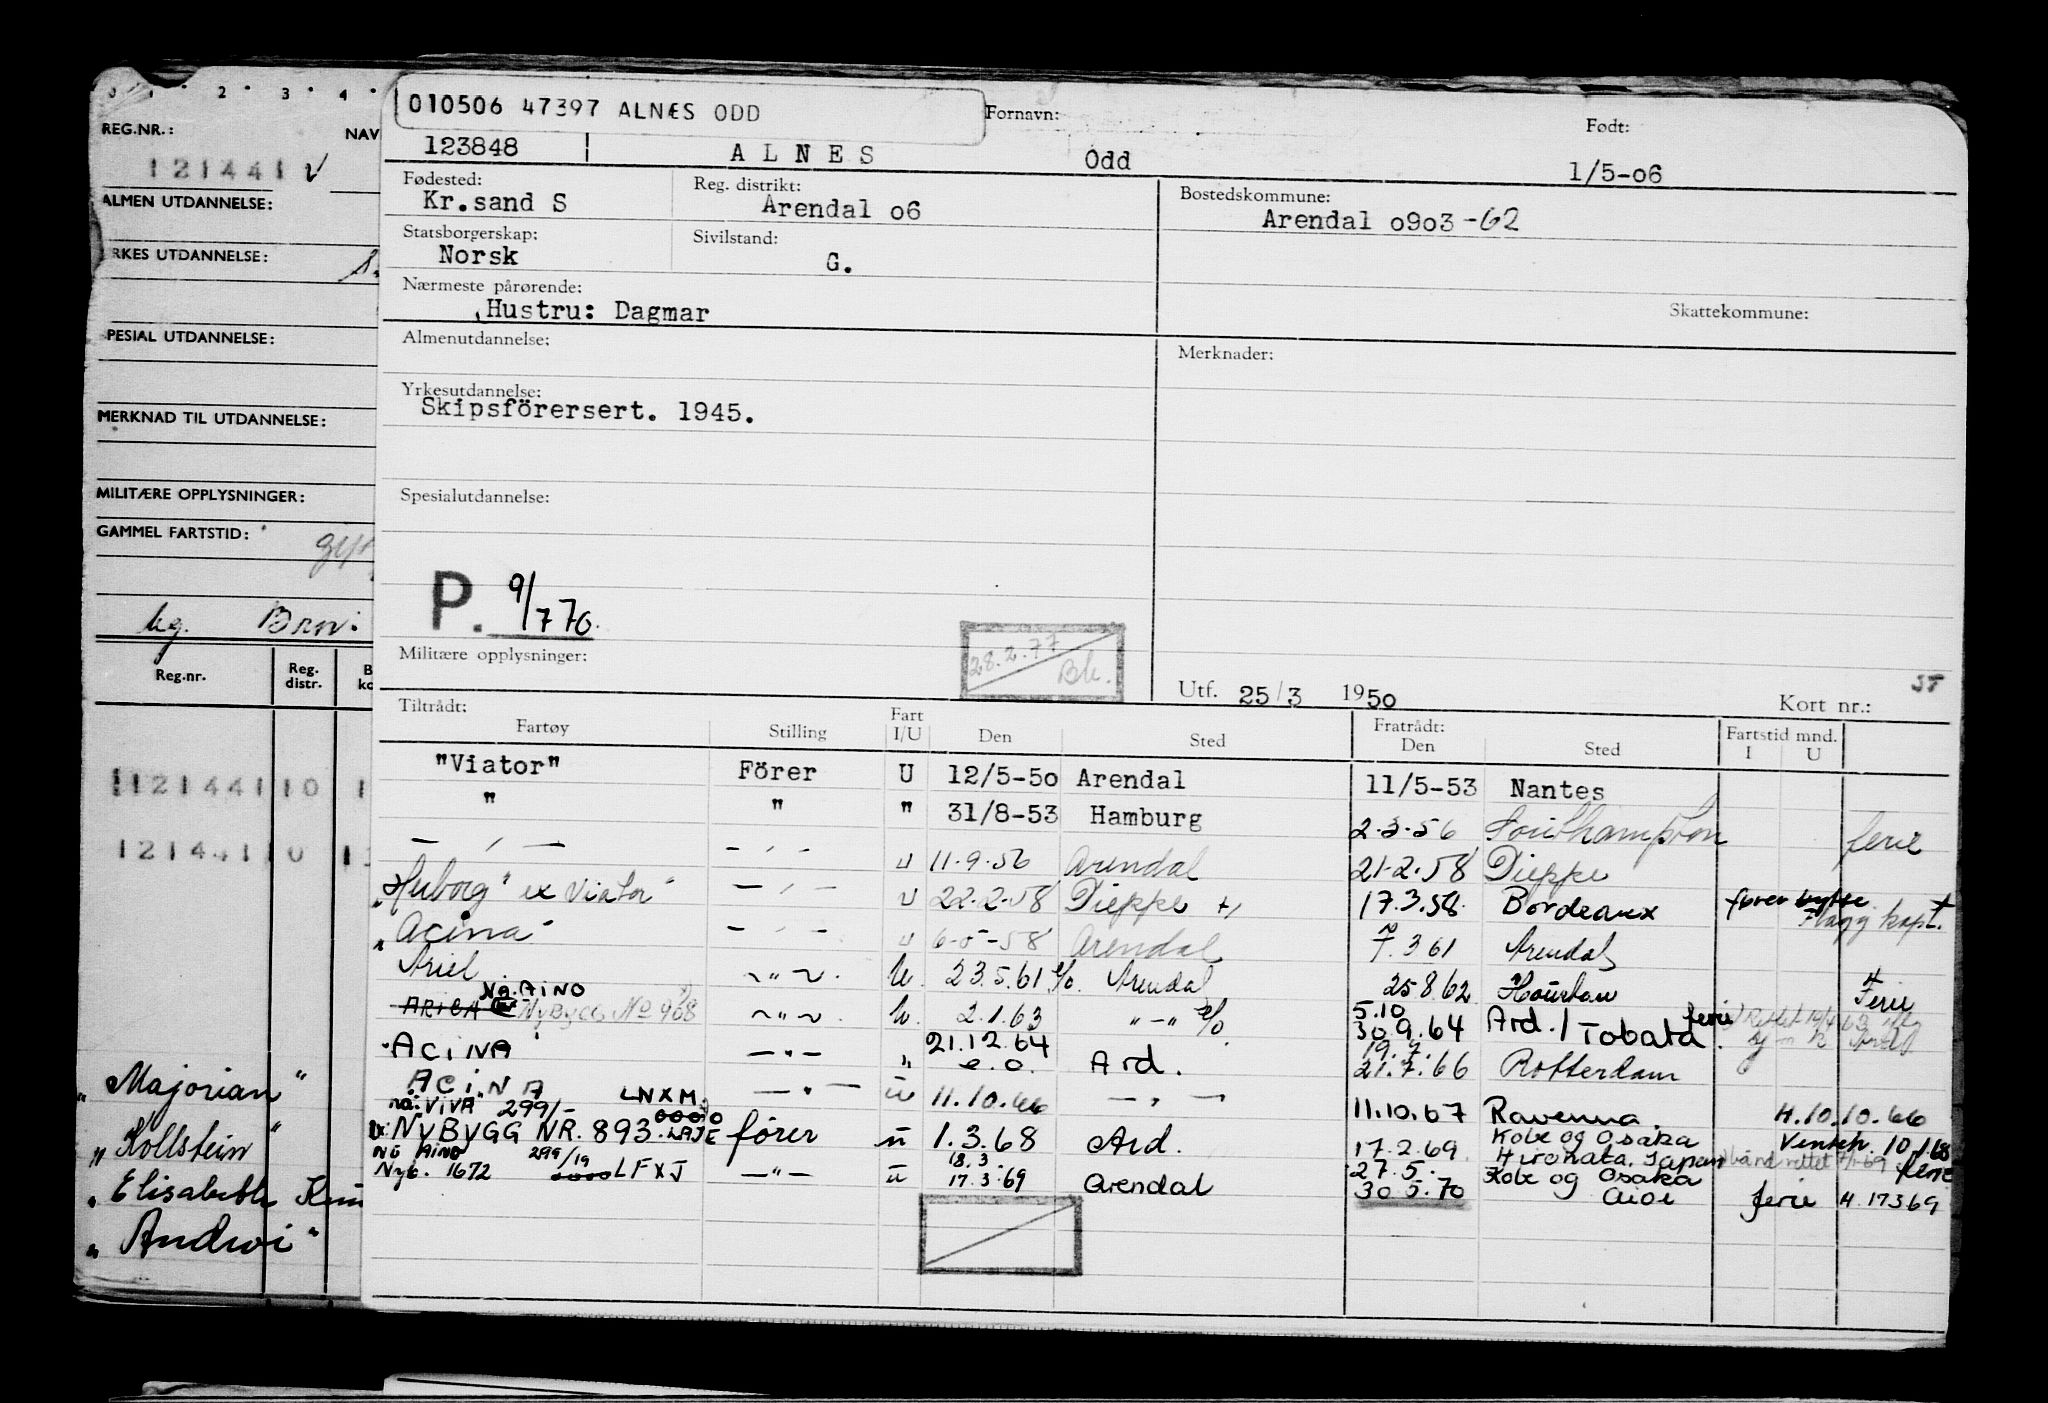 0 1 2 3 4
REG.NR.:
NAV
121441 v
ALMEN UTDANNELSE:
RKES UTDANNELSE:
PESIAL UTDANNELSE:
MERKNAD TIL UTDANNELSE:
MILITÆRE OPPLYSNINGER:
GAMMEL FARTSTID:
Reg.nr. Reg. distr.
121441 0 1
121441 0 1
"Majorian"
"Kollstein"
"Elisabeth
010506 47397 ALNÆS ODD
Fornavn: Født:
123848 ALNES Odd 1/5-06
Fødested: Reg. distrikt: Bostedskommune:
Kr.sand S Arendal 06 Arendal 0903-62
Statsborgerskap: Sivilstand:
Norsk G.
Nærmeste pårørende:
Hustru: Dagmar
Skattekommune:
Almenutdannelse: Merknader:
Yrkesutdannelse:
Skipsförersert. 1945.
Spesialutdannelse:
P. 9/7 70.
28.2.77
Bh.
Militære opplysninger:
Utf. 25/3 1950 Kort nr.:
Tiltrådt: Fartøy Stilling Fart I/U Den Sted Fratrådt: Den Sted Fartstid mnd. I U
"Viator" Förer U 12/5-50 Arendal 11/5-53 Nantes
" " " 31/8-53 Hamburg 2.3.56 Southampton ferie
— " — - " - u 11.9.56 Arendal 21.2.58 Dieppe
"Herborg" ex Viator" — " — u 22.2.58 Dieppe +/ 17.3.58 Bordeaux fører bytte Flagg kapt.
"Acina" - " - u 6-5-58 Arendal 7.3 61 Arendal
Ariel ~ " ~ u. 23.5.61 e/o. Arendal 25.8.62 Houston Ferie
Nå. AINO
ARICA Nybygg No 908 ~ " ~ u. 2.1.63 " - " e/o 5.10 30.9.64 Ard. / Tobata ferie
"ACINA" — " — " 21.12.64 e.o. Ard. 19.7. 21.7.66 Rotterdam
ACINA — " — u 11.10.66 — " — 11.10.67 Ravenna H.10.10.66
nå: "VIVA" 299/- LNXM
ex NYBYGG NR. 893 LAJE fører u 1.3.68 Ard. 17.2.69 Kobe og Osaka Hironata, Japan 10.1.68
nå AINO 299/19
Nyb. 1672 LFXJ — " — u 18.3. 17.3.69 Arendal 27.5. 30.5.70 Kobe og Osaka Aioi ferie H.17369